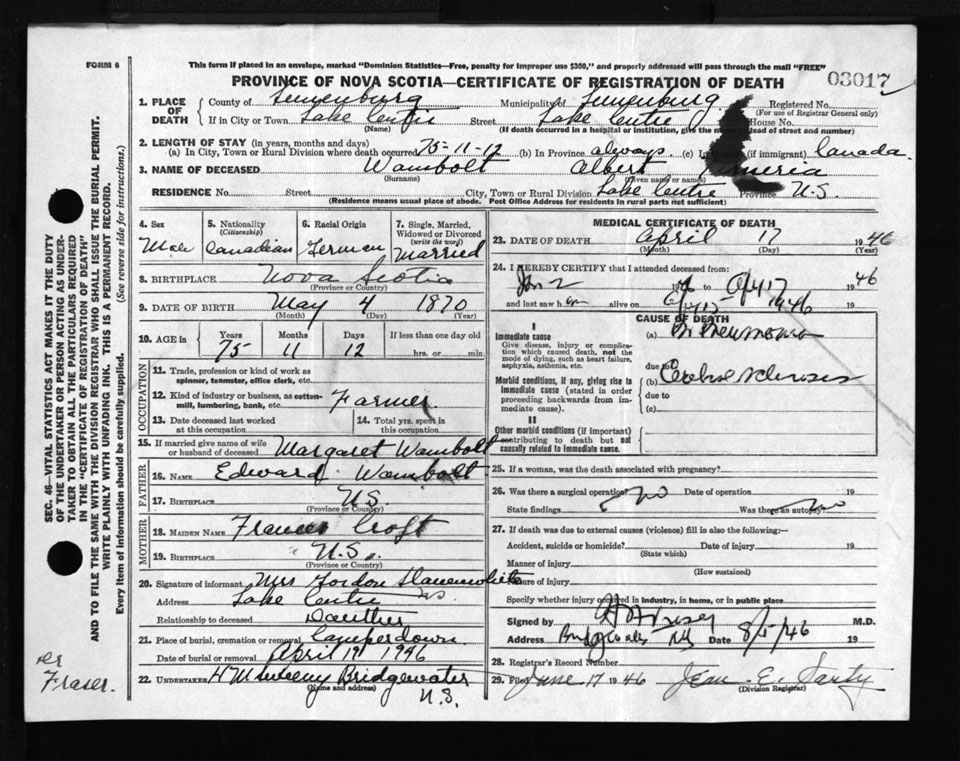 FORM 6
This form if placed in an envelope, marked "Dominion Statistics—Free, penalty for improper use $300," and properly addressed will pass through the mail "FREE"
PROVINCE OF NOVA SCOTIA—CERTIFICATE OF REGISTRATION OF DEATH
03017
1. PLACE OF DEATH County of Lunenburg Municipality of Lunenburg Registered No.
(For use of Registrar General only)
If in City or Town Lake Centre Street Lake Centre House No.
(Name) (If death occurred in a hospital or institution, give the instead of street and number)
2. LENGTH OF STAY (in years, months and days)
(a) In City, Town or Rural Division where death occurred 75-11-12 (b) In Province always (c) In (if immigrant) Canada
3. NAME OF DECEASED Wambolt Albert
(Surname) (Given name or names)
RESIDENCE No. Street City, Town or Rural Division Lake Centre Province N.S.
(Residence means usual place of abode. Post Office Address for residents in rural parts not sufficient)
4. Sex Male
5. Nationality (Citizenship) Canadian
6. Racial Origin German
7. Single, Married, Widowed or Divorced (write the word) Married
8. BIRTHPLACE Nova Scotia
(Province or Country)
9. DATE OF BIRTH May 4 1870
(Month) (Day) (Year)
10. AGE in Years 75 Months 11 Days 12 If less than one day old
hrs. or min.
OCCUPATION
11. Trade, profession or kind of work as spinner, teamster, office clerk, etc.
12. Kind of industry or business, as cotton-mill, lumbering, bank, etc. Farmer
13. Date deceased last worked at this occupation
14. Total yrs. spent in this occupation
15. If married give name of wife or husband of deceased Margaret Wambolt
FATHER
16. NAME Edward Wambolt
17. BIRTHPLACE N.S.
(Province or Country)
MOTHER
18. MAIDEN NAME Frances Croft
19. BIRTHPLACE N.S.
(Province or Country)
20. Signature of informant Mrs Gordon
Address Lake Centre N.S.
Relationship to deceased Daughter
21. Place of burial, cremation or removal Camperdown
Date of burial or removal April 19 1946
22. UNDERTAKER Bridgewater
(Name and address) N.S.
MEDICAL CERTIFICATE OF DEATH
23. DATE OF DEATH April 17 1946
(Month) (Day) (Year)
24. I HEREBY CERTIFY that I attended deceased from:
Jan 2 to Apl 17 1946
and last saw him alive on Apl 15 1946
CAUSE OF DEATH
I
Immediate cause
Give disease, injury or complication which caused death, not the mode of dying, such as heart failure, asphyxia, asthenia, etc.
(a) Pneumonia
due to
Morbid conditions, if any, giving rise to immediate cause (stated in order proceeding backwards from immediate cause).
(b) Cerebral sclerosis
due to
(c)
II
Other morbid conditions (if important) contributing to death but not causally related to immediate cause.
25. If a woman, was the death associated with pregnancy?
26. Was there a surgical operation? no Date of operation 19
State findings Was there an autopsy? no
27. If death was due to external causes (violence) fill in also the following:—
Accident, suicide or homicide? Date of injury 19
(State which)
Manner of injury
(How sustained)
Nature of injury
Specify whether injury occurred in industry, in home, or in public place
Signed by M.D.
Address Bridgewater NS Date 8/5/46 19
28. Registrar's Record Number
29. Filed June 17 1946 Jean E.
(Division Registrar)
SEC. 46—VITAL STATISTICS ACT MAKES IT THE DUTY
OF THE UNDERTAKER OR PERSON ACTING AS UNDER-
TAKER TO OBTAIN ALL THE PARTICULARS REQUIRED
IN THE "CERTIFICATE OF REGISTRATION OF DEATH"
AND TO FILE THE SAME WITH THE DIVISION REGISTRAR WHO SHALL ISSUE THE BURIAL PERMIT.
WRITE PLAINLY WITH UNFADING INK. THIS IS A PERMANENT RECORD.
Every item of information should be carefully supplied. (See reverse side for instructions.)
Dr
Fraser.